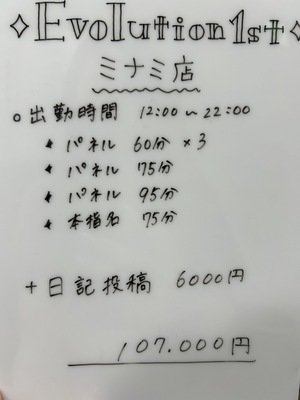 ✧Evolution1st✧
ミナミ店
○出勤時間 12:00～22:00
★ パネル 60分 ×3
★ パネル 75分
★ パネル 95分
★ 本指名 75分
+日記投稿 6000円
107.000円